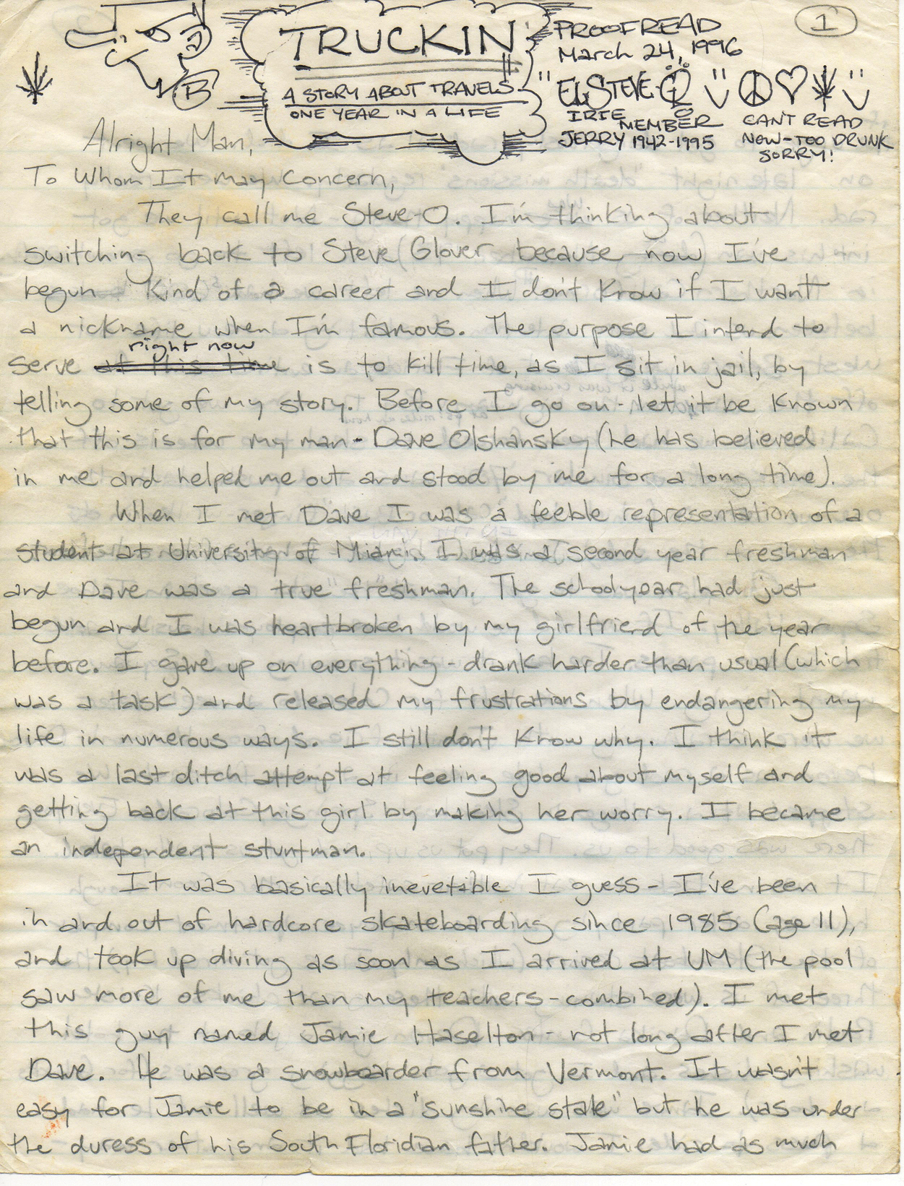 TRUCKIN'
A STORY ABOUT TRAVELS
ONE YEAR IN A LIFE
B
PROOFREAD
March 24, 1996
"EL STEVE-O"
IRIE MEMBER
JERRY 1942-1995
CANT READ
NOW-TOO DRUNK
SORRY!
1
Alright Man,
To Whom It may concern,
They call me Steve-O. I'm thinking about
switching back to Steve (Glover because now I've
begun Kind of a career and I don't Know if I want
a nickname when I'm famous. The purpose I intend to
right now
serve at this time is to kill time, as I sit in jail, by
telling some of my story. Before I go on - let it be Known
that this is for my man - Dave Olshansky (he has believed
in me and helped me out and stood by me for a long time).
When I met Dave I was a feeble representation of a
student at University of Miami. I was a second year freshman
and Dave was a true freshman. The schoolyear had just
begun and I was heartbroken by my girlfriend of the year
before. I gave up on everything - drank harder than usual (which
was a task) and released my frustrations by endangering my
life in numerous ways. I still don't Know why. I think it
was a last ditch attempt at feeling good about myself and
getting back at this girl by making her worry. I became
an independent stuntman.
It was basically inevetable I guess - I've been
in and out of hardcore skateboarding since 1985 (age 11),
and took up diving as soon as I arrived at UM (the pool
saw more of me than my teachers - combined). I met
this guy named Jamie Haselton - not long after I met
Dave. He was a snowboarder from Vermont. It wasn't
easy for Jamie to be in a "sunshine state" but he was under
the duress of his South Floridian father. Jamie had as much